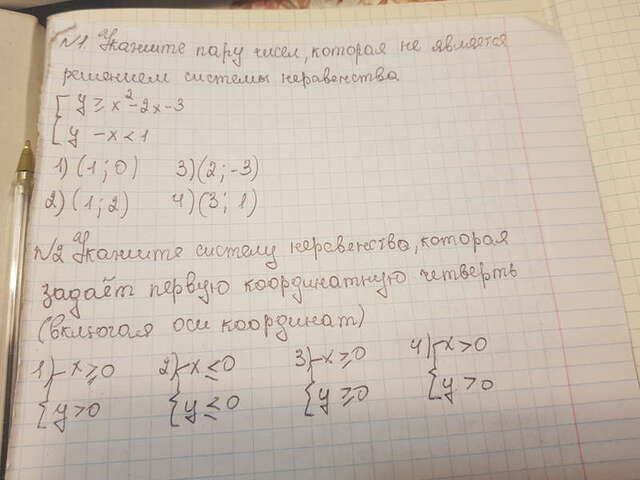 №1. Укажите пару чисел, которая не является
решением системы неравенства
{ y ≥ x² - 2x - 3
{ y - x < 1
1) (1; 0) 3) (2; -3)
2) (1; 2) 4) (3; 1)
№2 Укажите систему неравенства, которая
задаёт первую координатную четверть
(включая оси координат)
1) { x ≥ 0 2) { x ≤ 0 3) { x ≥ 0 4) { x > 0
{ y > 0 { y ≤ 0 { y ≥ 0 { y > 0